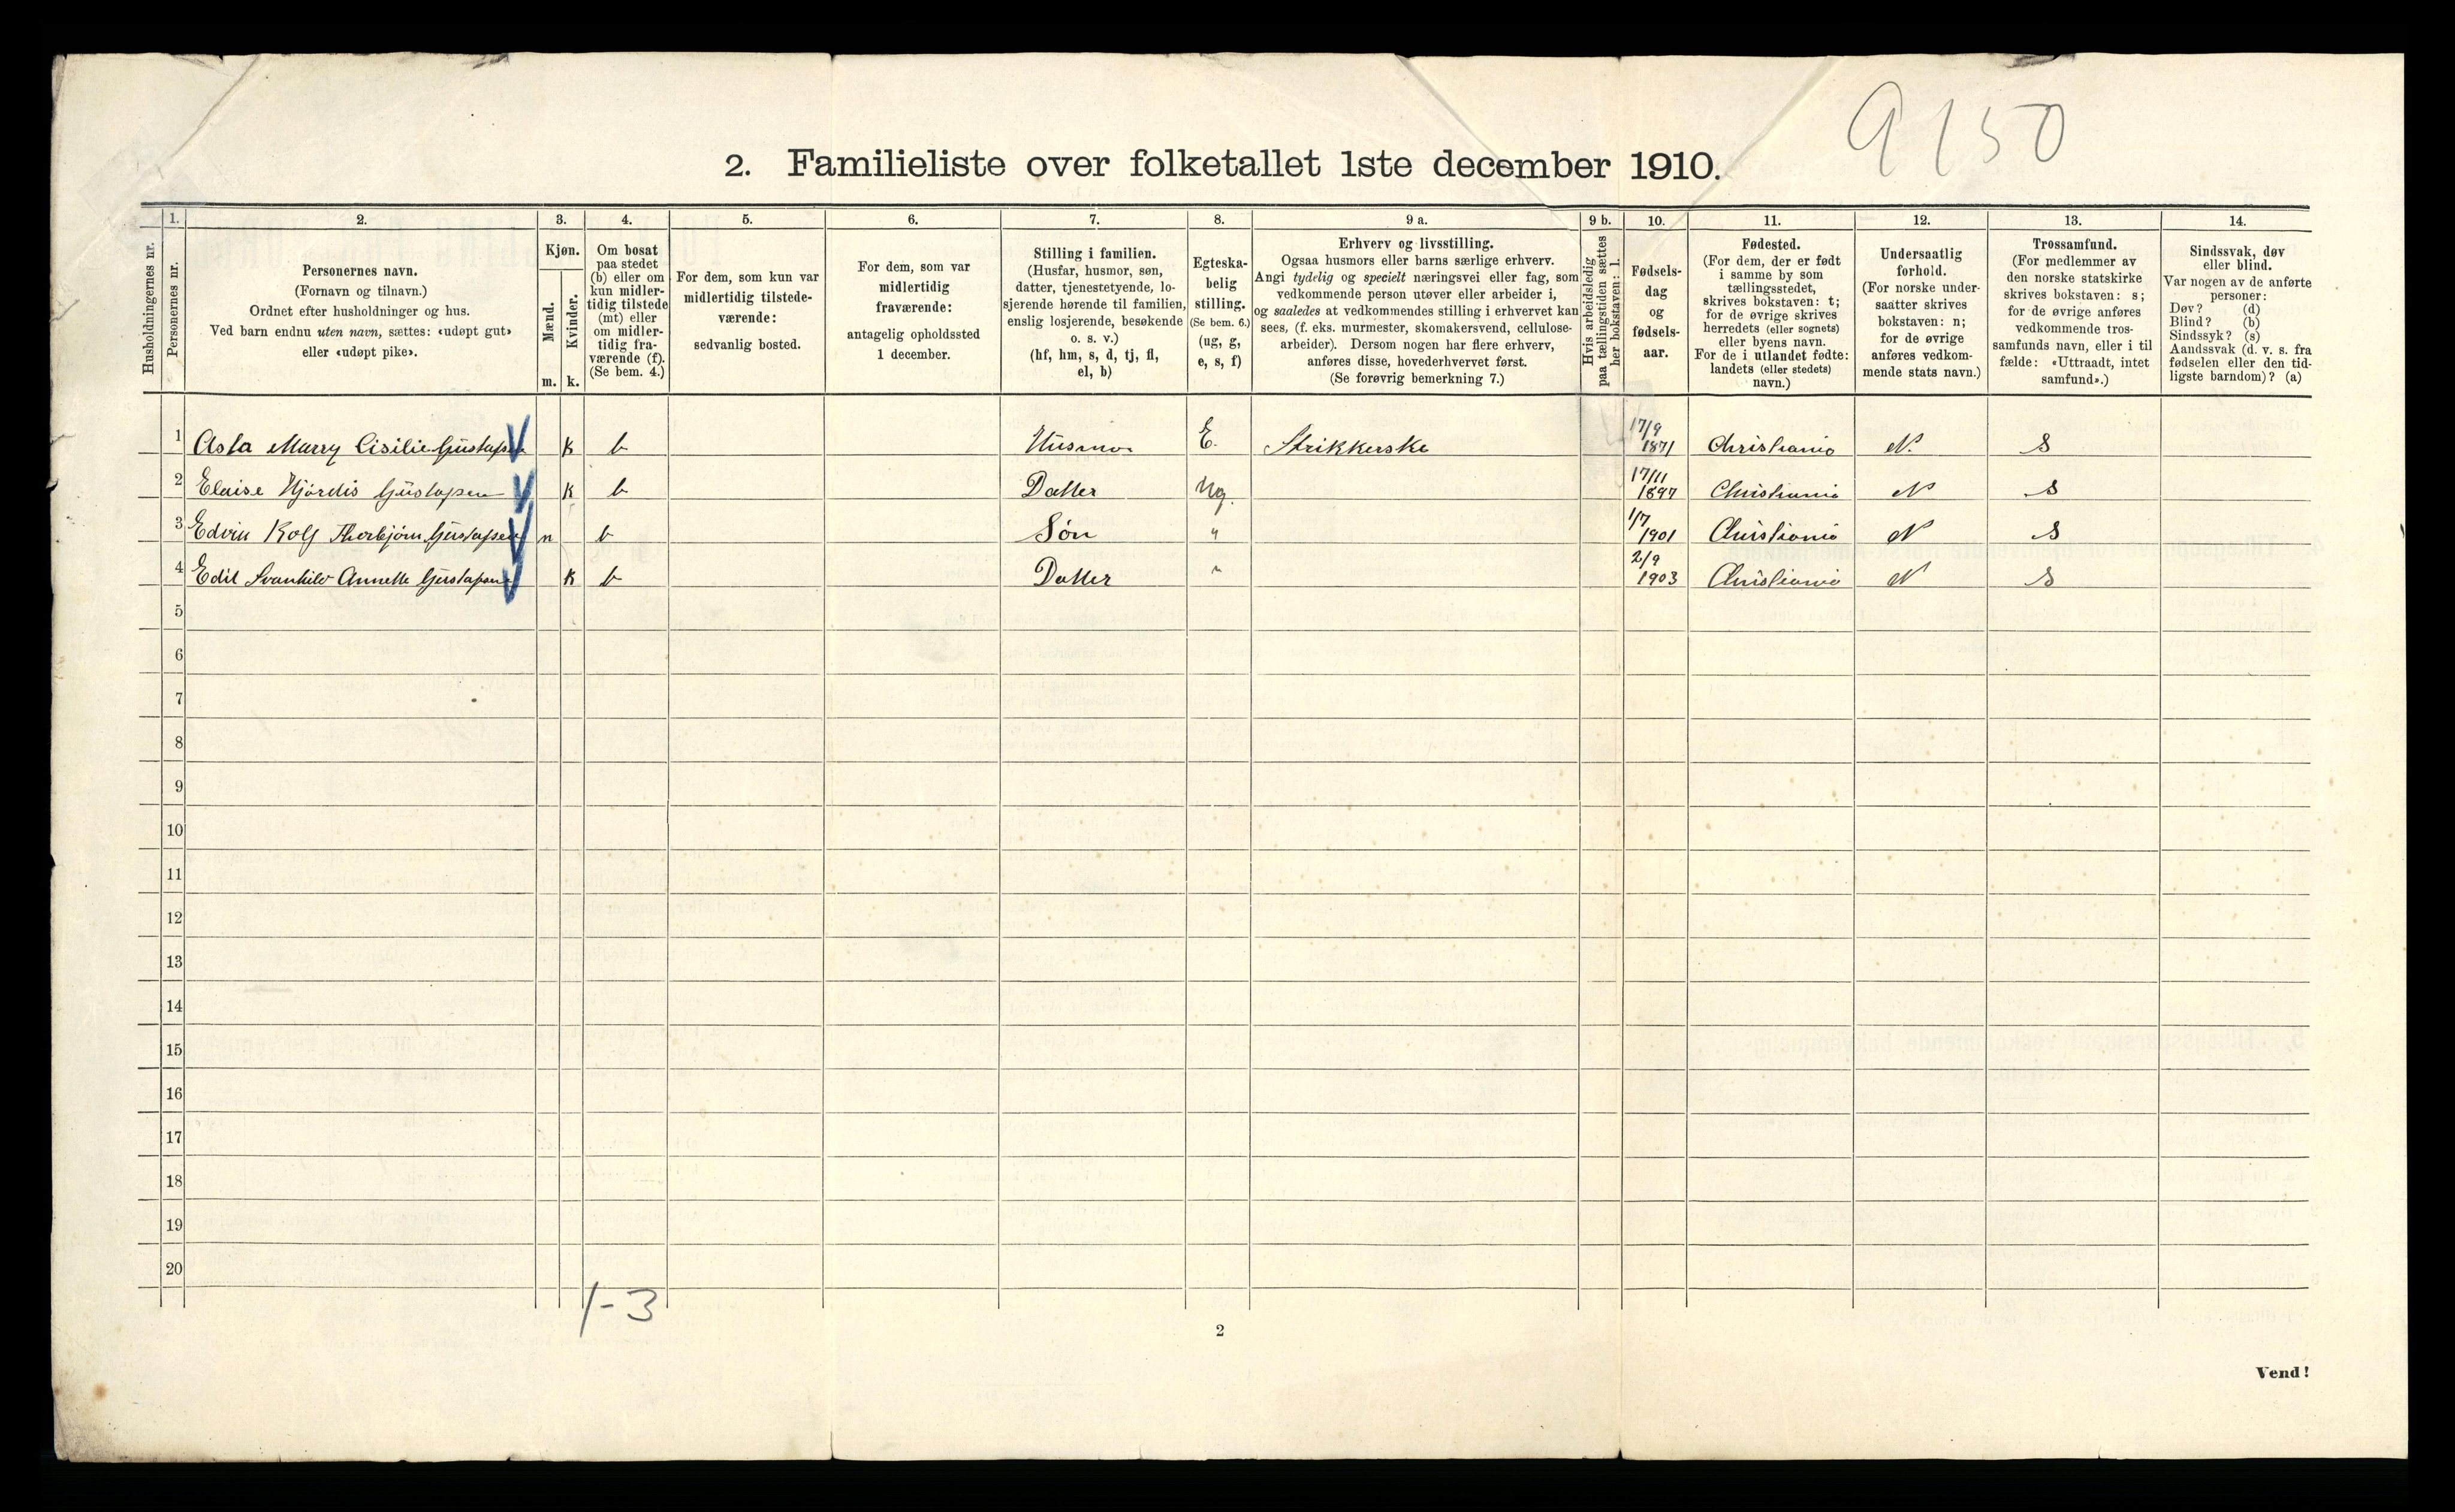 9150
2. Familieliste over folketallet 1ste december 1910.
1. 2. 3. 4. 5. 6. 7. 8. 9 a. 9 b. 10. 11. 12. 13. 14.
Husholdningernes nr.
Personernes nr.
Personernes navn.
(Fornavn og tilnavn.)
Ordnet efter husholdninger og hus.
Ved barn endnu uten navn, sættes: «udøpt gut»
eller «udøpt pike».
Kjøn.
Mænd.
m.
Kvinder.
k.
Om bosat
paa stedet
(b) eller om
kun midler-
tidig tilstede
(mt) eller
om midler-
tidig fra-
værende (f).
(Se bem. 4.)
For dem, som kun var
midlertidig tilstede-
værende:
sedvanlig bosted.
For dem, som var
midlertidig
fraværende:
antagelig opholdssted
1 december.
Stilling i familien.
(Husfar, husmor, søn,
datter, tjenestetyende, lo-
sjerende hørende til familien,
enslig losjerende, besøkende
o. s. v.)
(hf, hm, s, d, tj, fl,
el, b)
Egteska-
belig
stilling.
(Se bem. 6.)
(ug, g,
e, s, f)
Erhverv og livsstilling.
Ogsaa husmors eller barns særlige erhverv.
Angi tydelig og specielt næringsvei eller fag, som
vedkommende person utøver eller arbeider i,
og saaledes at vedkommendes stilling i erhvervet kan
sees, (f. eks. murmester, skomakersvend, cellulose-
arbeider). Dersom nogen har flere erhverv,
anføres disse, hovederhvervet først.
(Se forøvrig bemerkning 7.)
Hvis arbeidsledig
paa tællingstiden sættes
her bokstaven: l.
Fødsels-
dag
og
fødsels-
aar.
Fødested.
(For dem, der er født
i samme by som
tællingsstedet,
skrives bokstaven: t;
for de øvrige skrives
herredets (eller sognets)
eller byens navn.
For de i utlandet fødte:
landets (eller stedets)
navn.)
Undersaatlig
forhold.
(For norske under-
saatter skrives
bokstaven: n;
for de øvrige
anføres vedkom-
mende stats navn.)
Trossamfund.
(For medlemmer av
den norske statskirke
skrives bokstaven: s;
for de øvrige anføres
vedkommende tros-
samfunds navn, eller i til
fælde: «Uttraadt, intet
samfund».)
Sindssvak, døv
eller blind.
Var nogen av de anførte
personer:
Døv? (d)
Blind? (b)
Sindssyk? (s)
Aandssvak (d. v. s. fra
fødselen eller den tid-
ligste barndom)? (a)
1 Asta Marry Cisilie Gustafsen k b Husmor E. Strikkerske 17/9 1871 Christiania N. S
2 Elaise Hjørdis Gustafsen k b Datter Ug. 17/11 1897 Christiania N S
3 Edvin Rolf Thorbjørn Gustafsen m b Søn " 1/7 1901 Christiania N S
4 Edit Svanhild Annette Gustafsen k b Datter " 2/9 1903 Christiania N S
5
6
7
8
9
10
11
12
13
14
15
16
17
18
19
20
1-3
2
Vend!